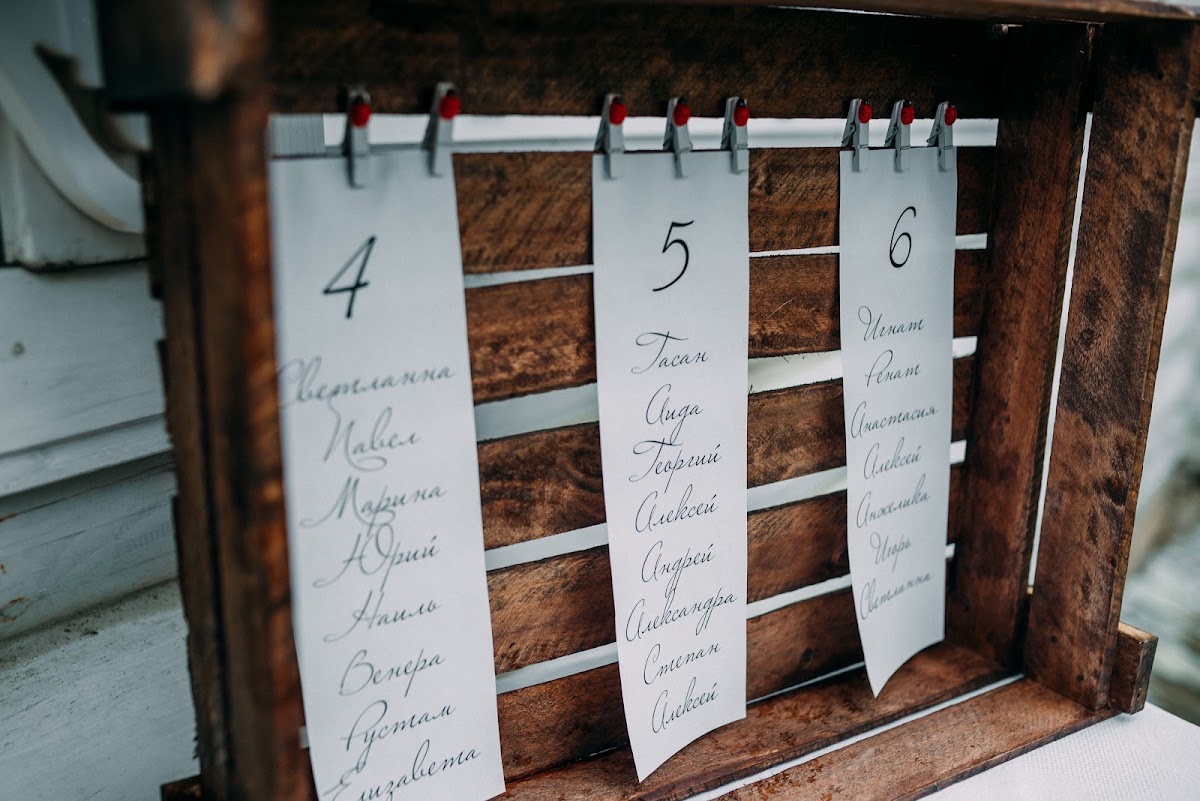 4
Светланна
Павел
Марина
Юрий
Наиль
Венера
Рустам
Елизавета
5
Гасан
Аида
Георгий
Алексей
Андрей
Александра
Степан
Алексей
6
Игнат
Ренат
Анастасия
Алексей
Анжелика
Игорь
Светланна